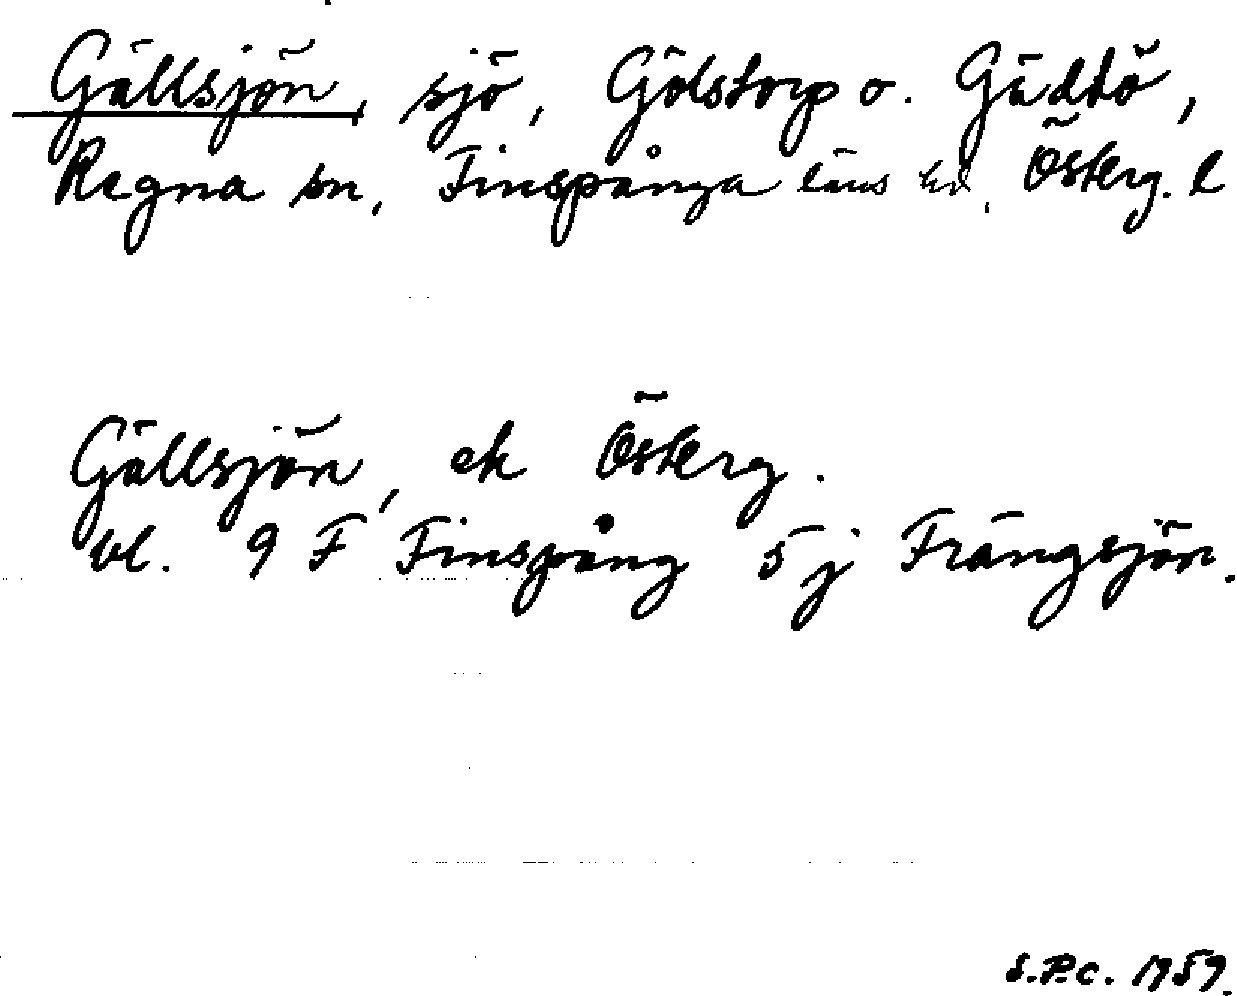 Gällsjön, sjö, Gölstorp o. Gäddtö,
Regna sn, Finspånga läns hd, Österg. l
Gällsjön, ek Österg.
bl. 9 F Finspång 5 j Frängsjön.
S.P.C. 1959.